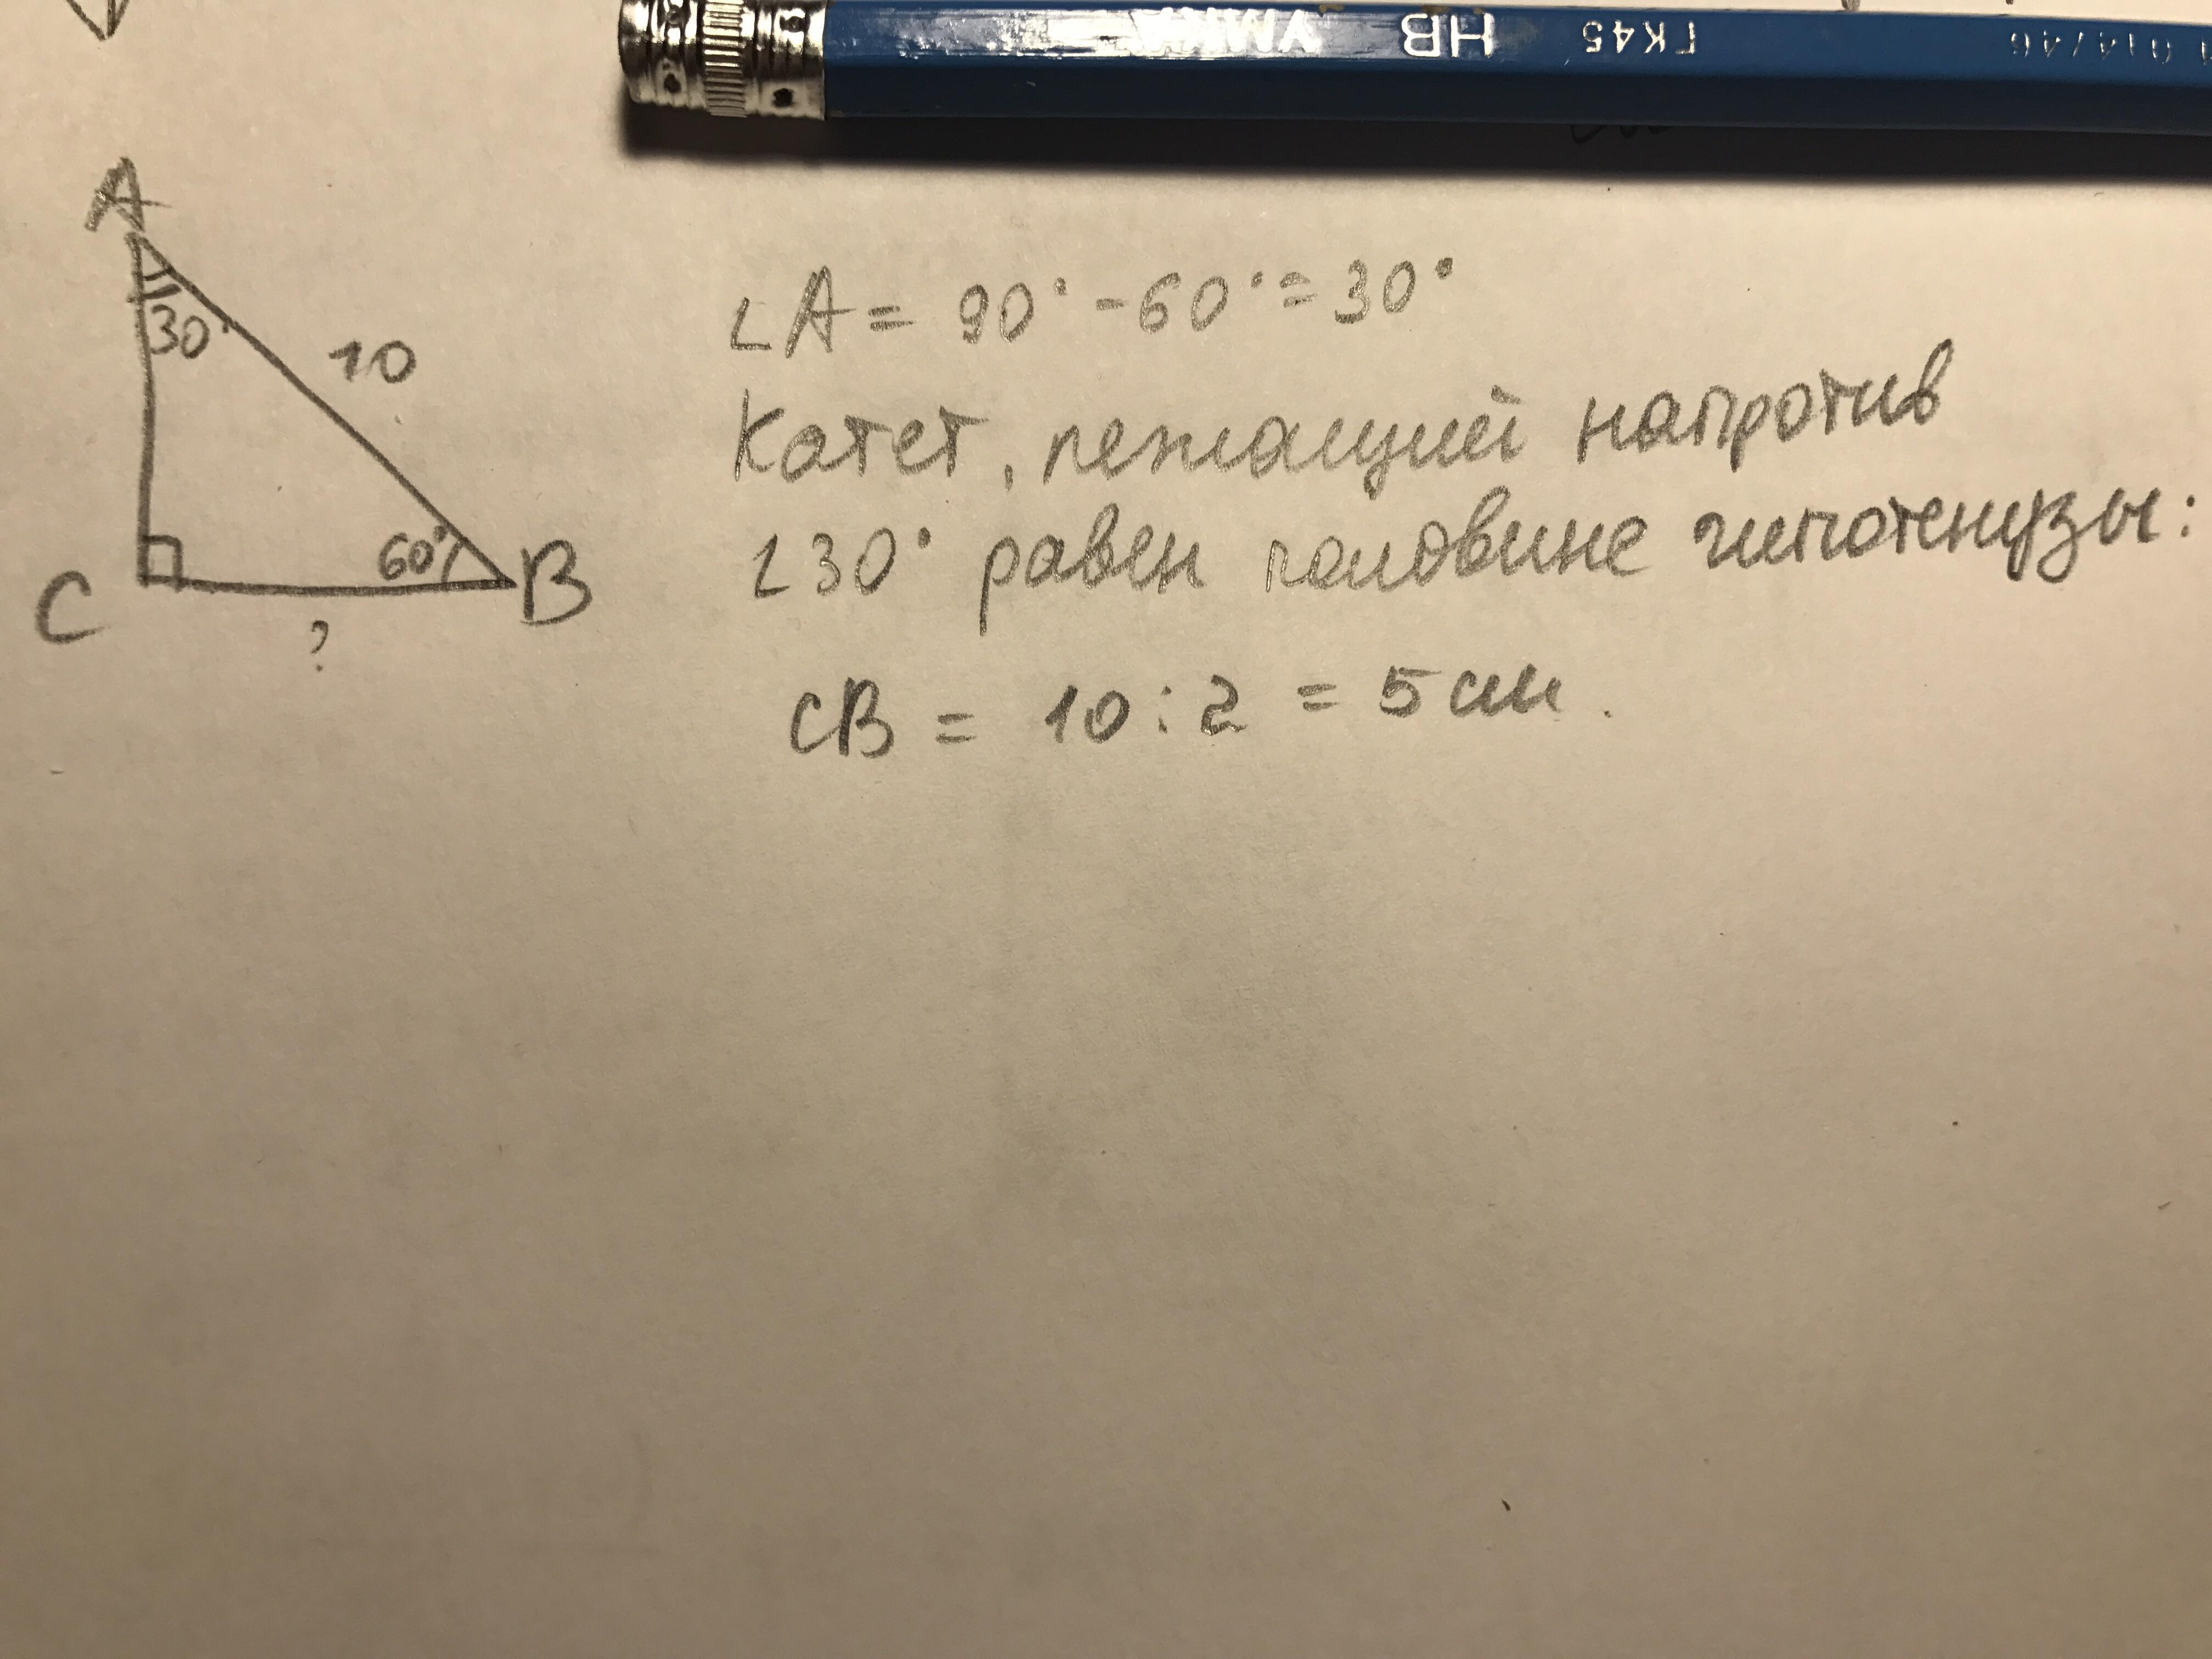 НВ ГК45
A
30°
10
60°
C
B
?
∠A = 90° - 60° = 30°
Катет, лежащий напротив
∠30° равен половине гипотенузы:
CB = 10 : 2 = 5 см.